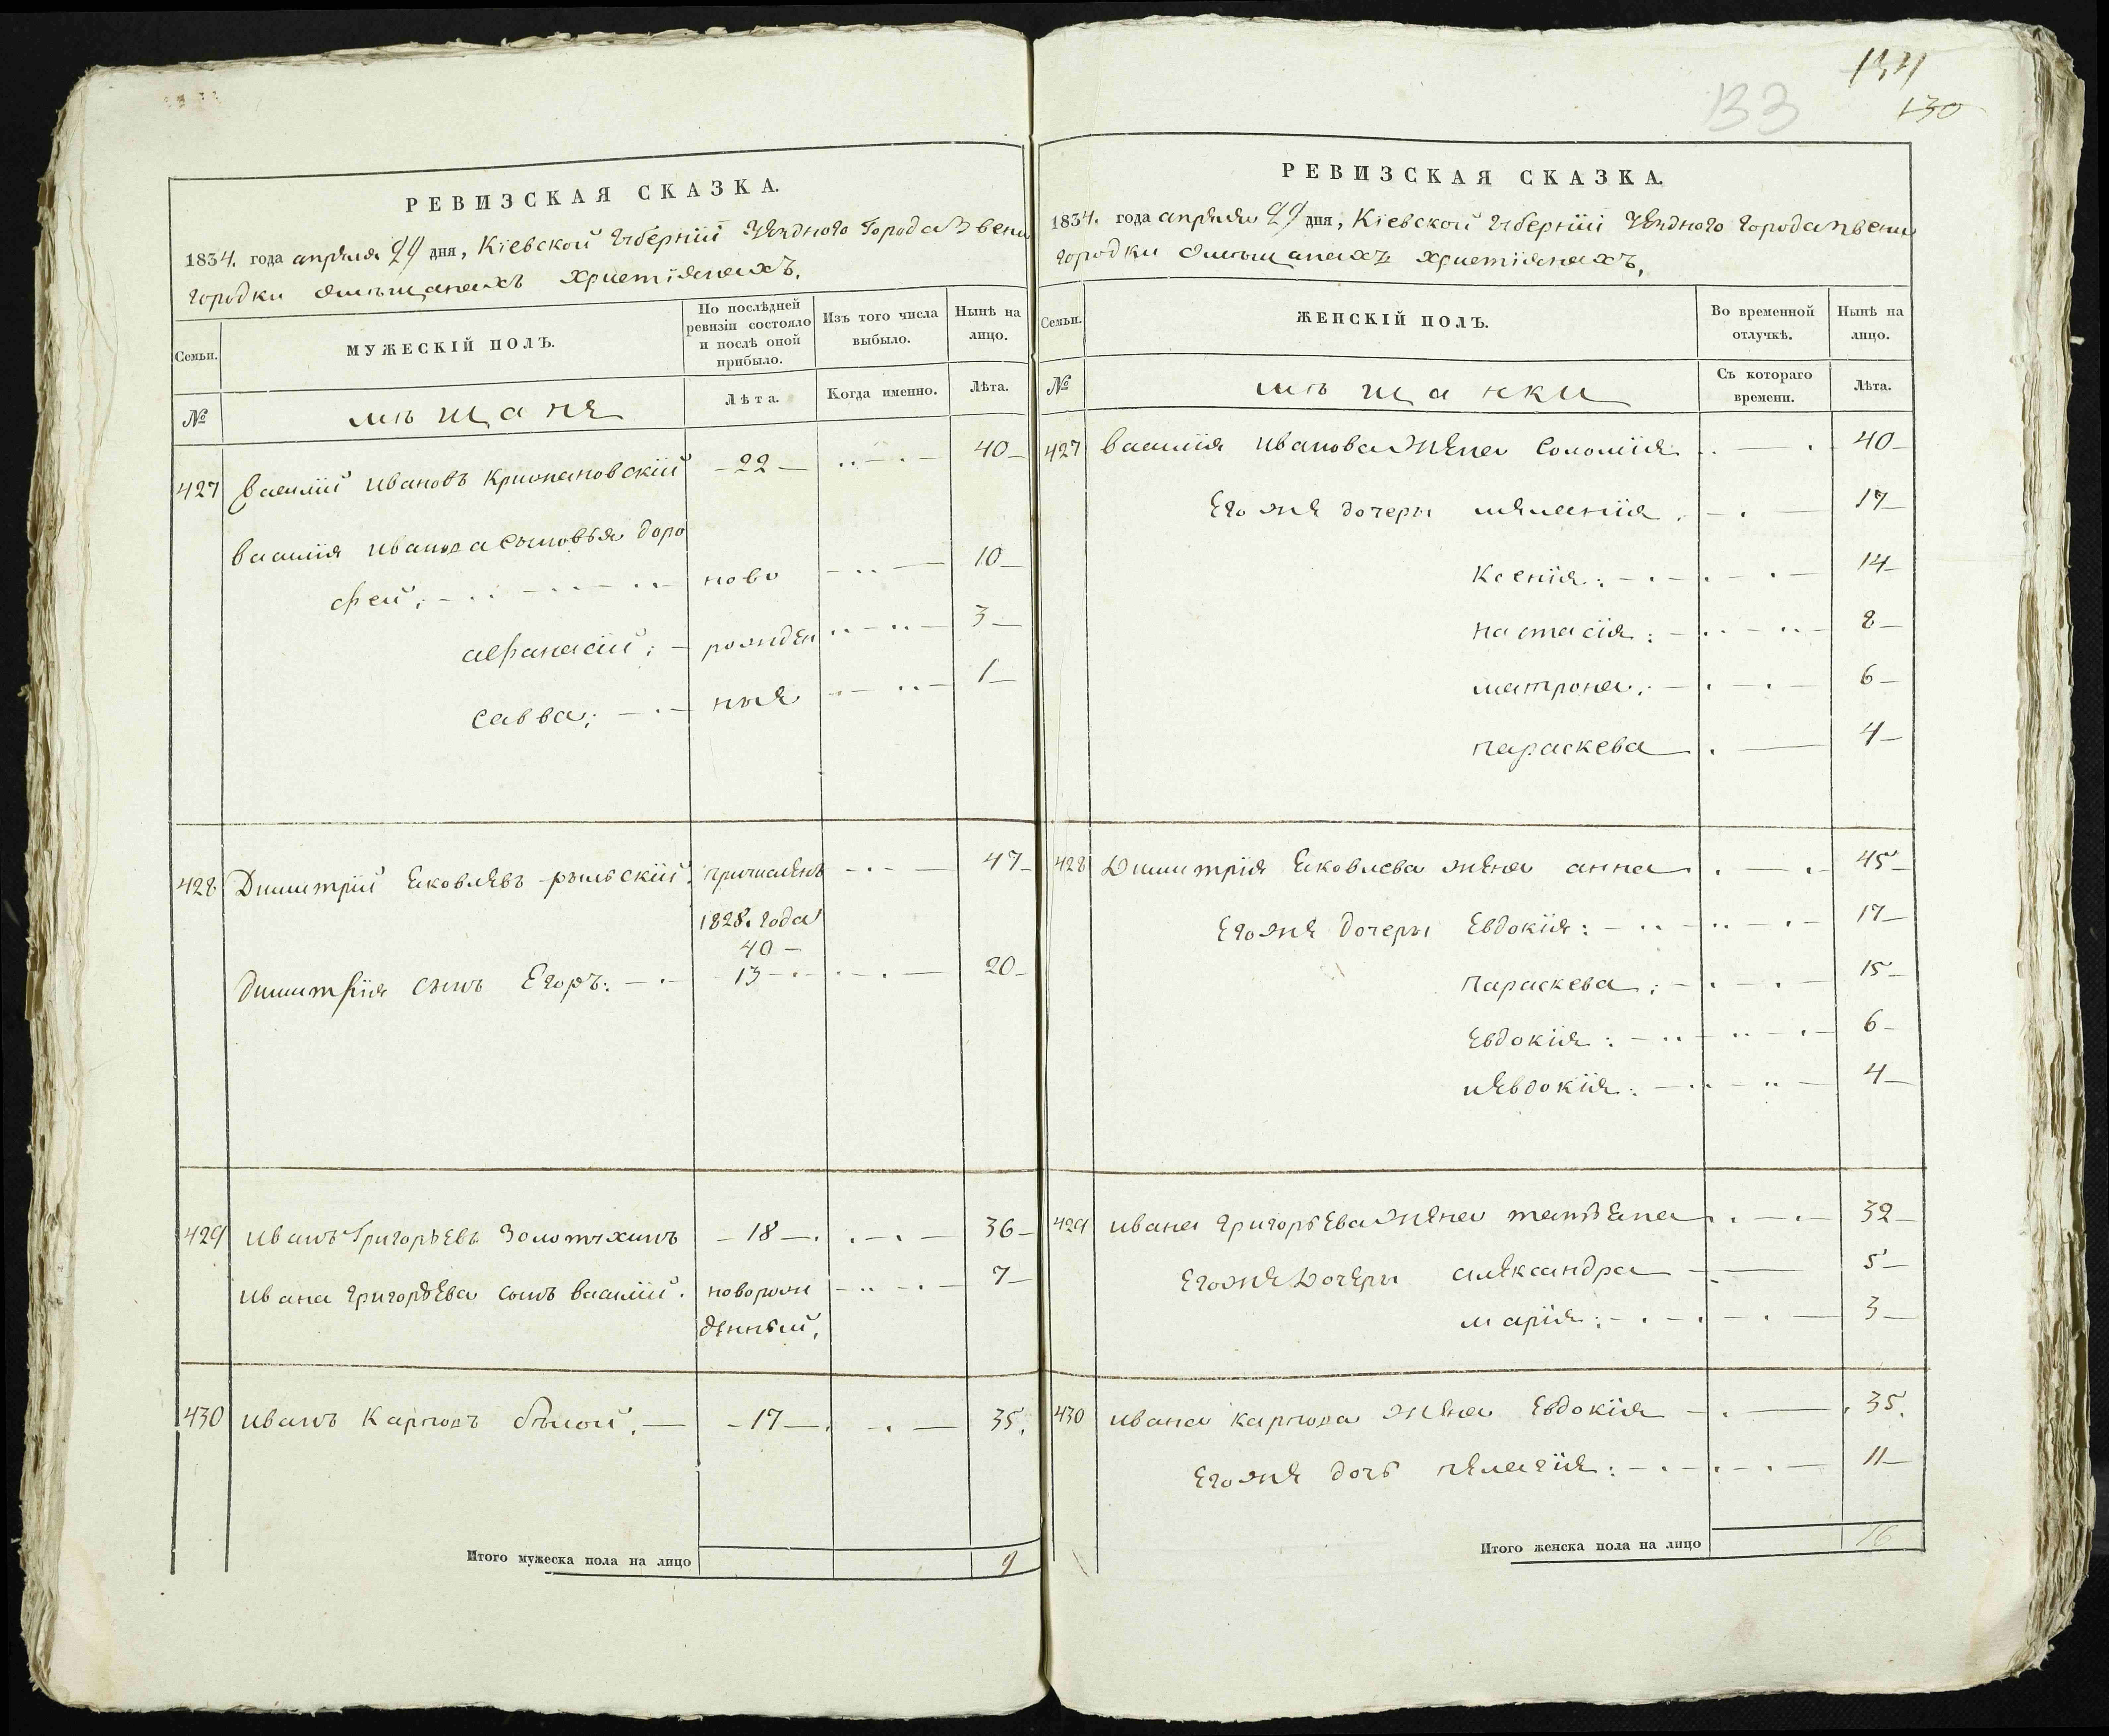 134
133
130
РЕВИЗСКАЯ СКАЗКА.
1834. года апреля 29 дня, Кіевской губерніи Уезднаго Города Звени
городки омещанахъ христіянахъ.
Семьи.
МУЖЕСКІЙ ПОЛЪ.
По послѣдней ревизіи состояло и послѣ оной прибыло.
Изъ того числа выбыло.
Нынѣ на лицо.
№
мѣщане
Лѣта.
Когда именно.
Лѣта.
427 Василій Ивановъ Крижановскій —22— 40—
Василія Иванова сыновья доро
фей: ново 10—
афанасій: рожден 3—
савва: ные 1—
428 Димитрій Яковлевъ рыльскій. причисленъ 47—
1828. года
40—
димитрія сынъ Егоръ: 13 20—
429 иванъ Григорьевъ Золотухинъ —18— 36—
ивана григорьева сынъ василій. новорож 7—
денный.
430 иванъ Карповъ бѣлой. —17— 35.
Итого мужеска пола на лицо 9
РЕВИЗСКАЯ СКАЗКА.
1834. года апреля 29 дня, Кіевской губерніи Уезднаго города Звени
городки омещанахъ христіянахъ.
Семьи.
ЖЕНСКІЙ ПОЛЪ.
Во временной отлучкѣ.
Нынѣ на лицо.
№
мѣщанки
Съ котораго времени.
Лѣта.
427 Василія иванова жена Соломія 40—
Егоже дочери меланія 17—
Ксенія: 14—
настасія: 8—
матрона: 6—
параскева 4—
428 Димитрія Яковлева жена анна 45—
Егоже дочери Евдокія: 17—
параскева: 15—
Евдокія: 6—
иевдокія: 4—
429 ивана григорьева жена татьяна 32—
Егоже дочери александра 5—
марія: 3—
430 ивана карпова жена Евдокія 35.
Егоже дочь пелагія: 11—
Итого женска пола на лицо 16